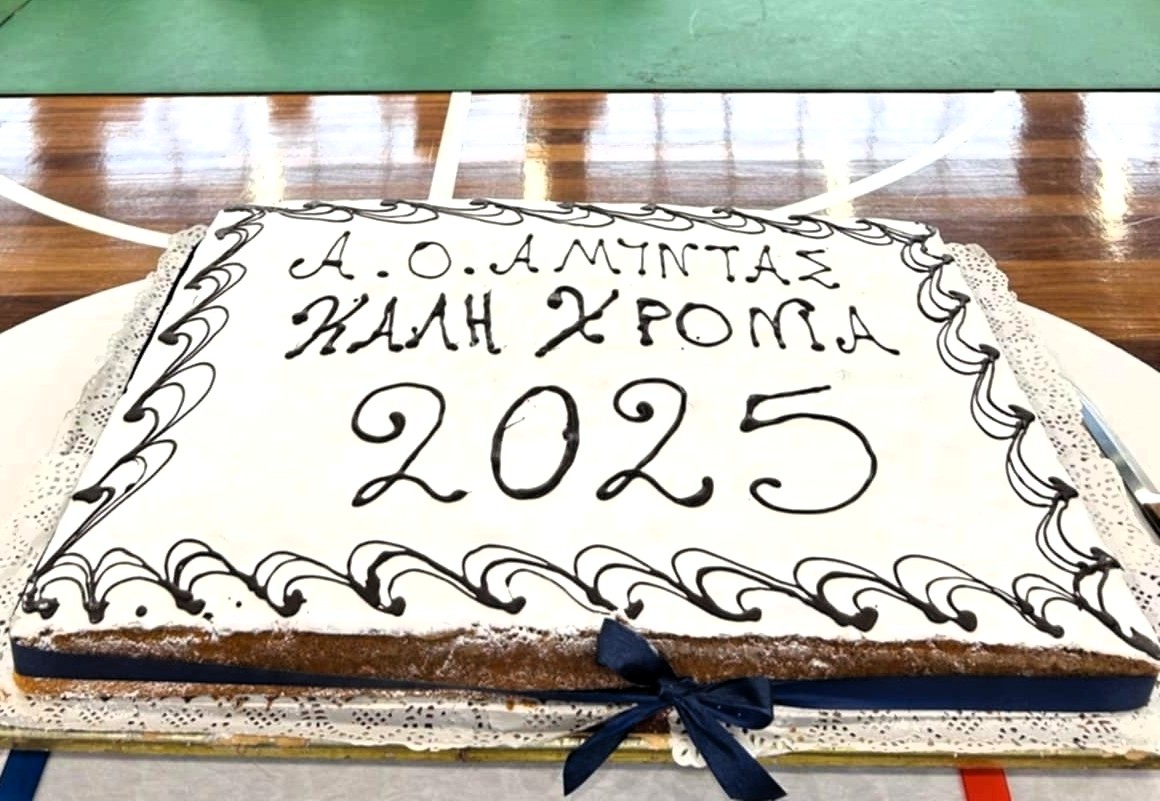 Α.Ο.ΑΜΥΝΤΑΣ
ΚΑΛΗ ΧΡΟΝΙΑ
2025